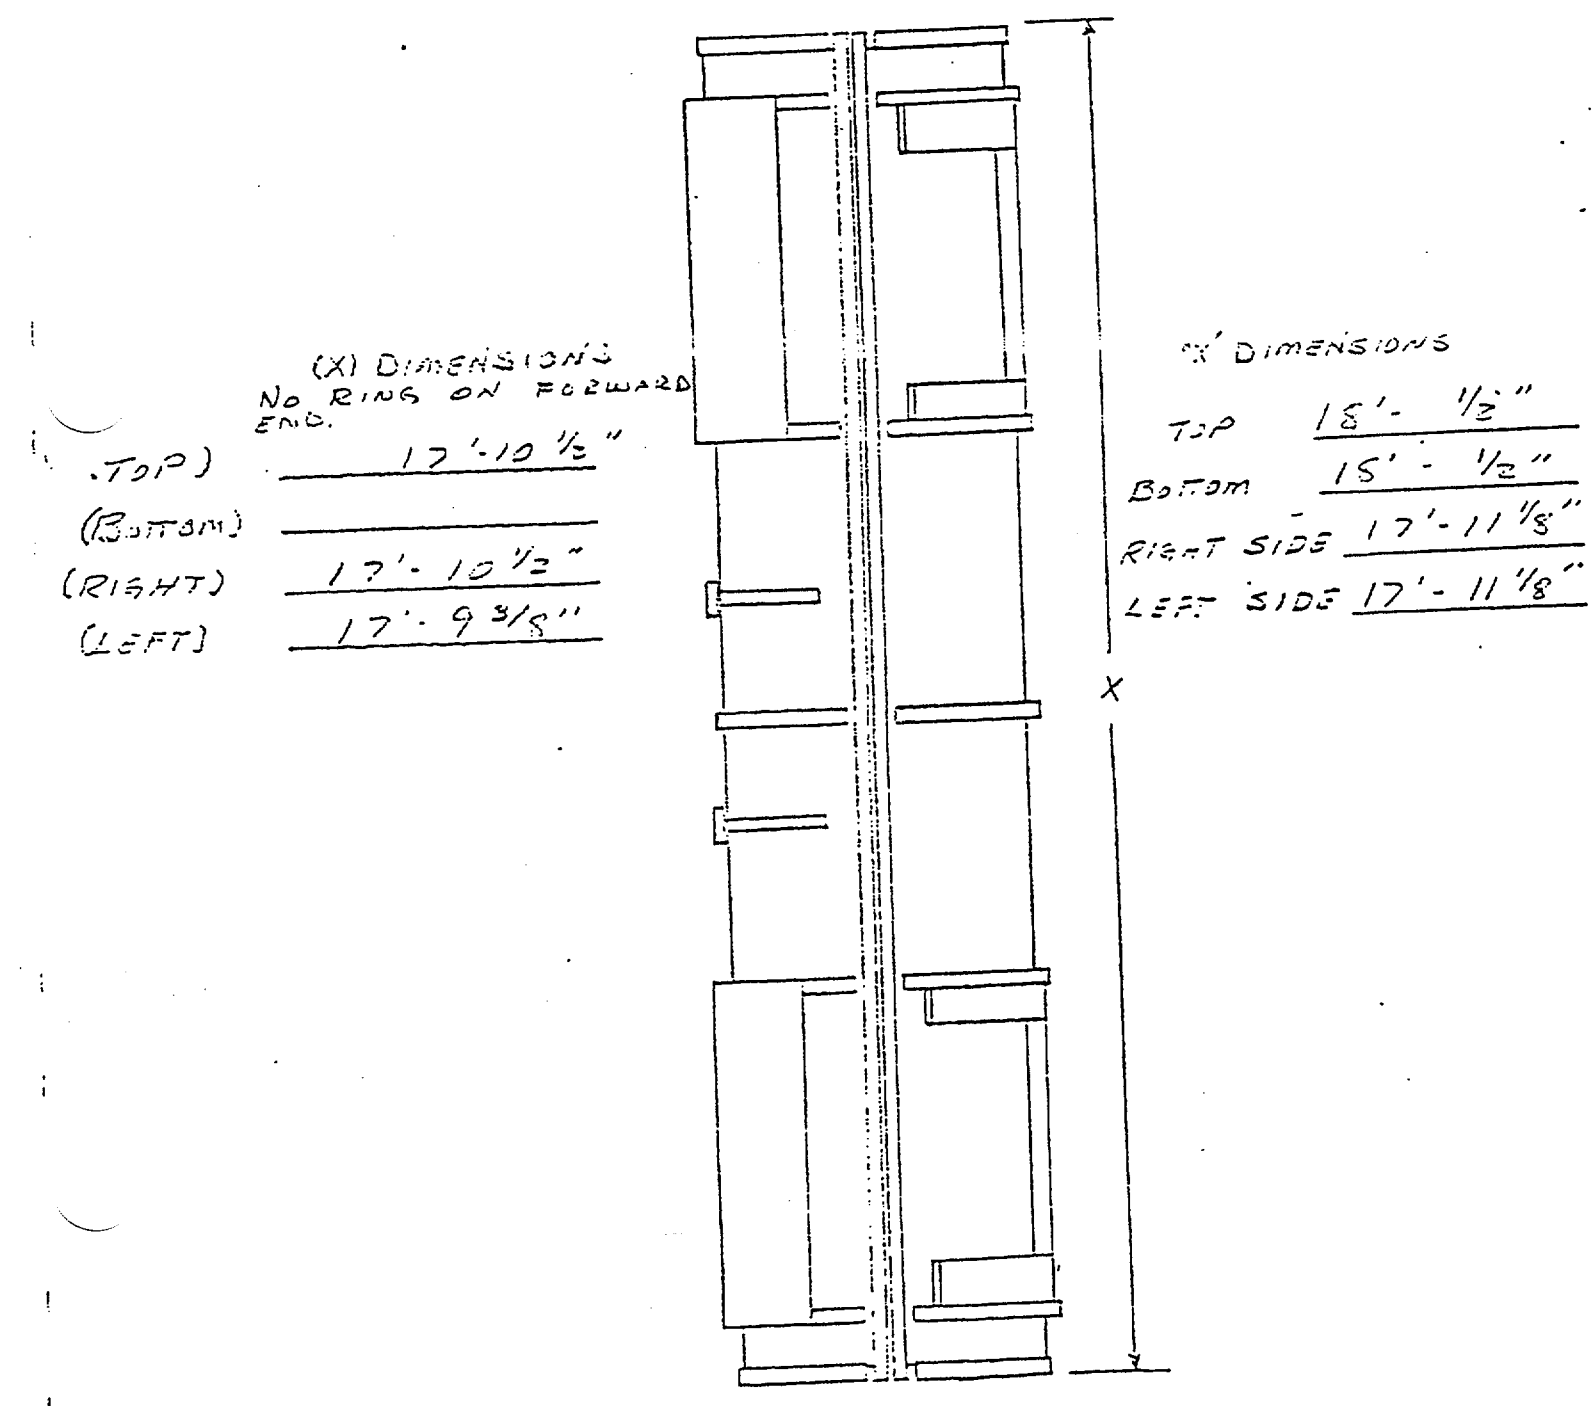 (X) DIMENSIONS
NO RING ON FORWARD
END.
.TOP) 17'-10 1/2"
(BOTTOM)
(RIGHT) 17'-10 1/2"
(LEFT) 17'-9 3/8"
"X" DIMENSIONS
TOP 18'- 1/2"
BOTTOM 18' - 1/2"
RIGHT SIDE 17'-11 1/8"
LEFT SIDE 17'-11 1/8"
X